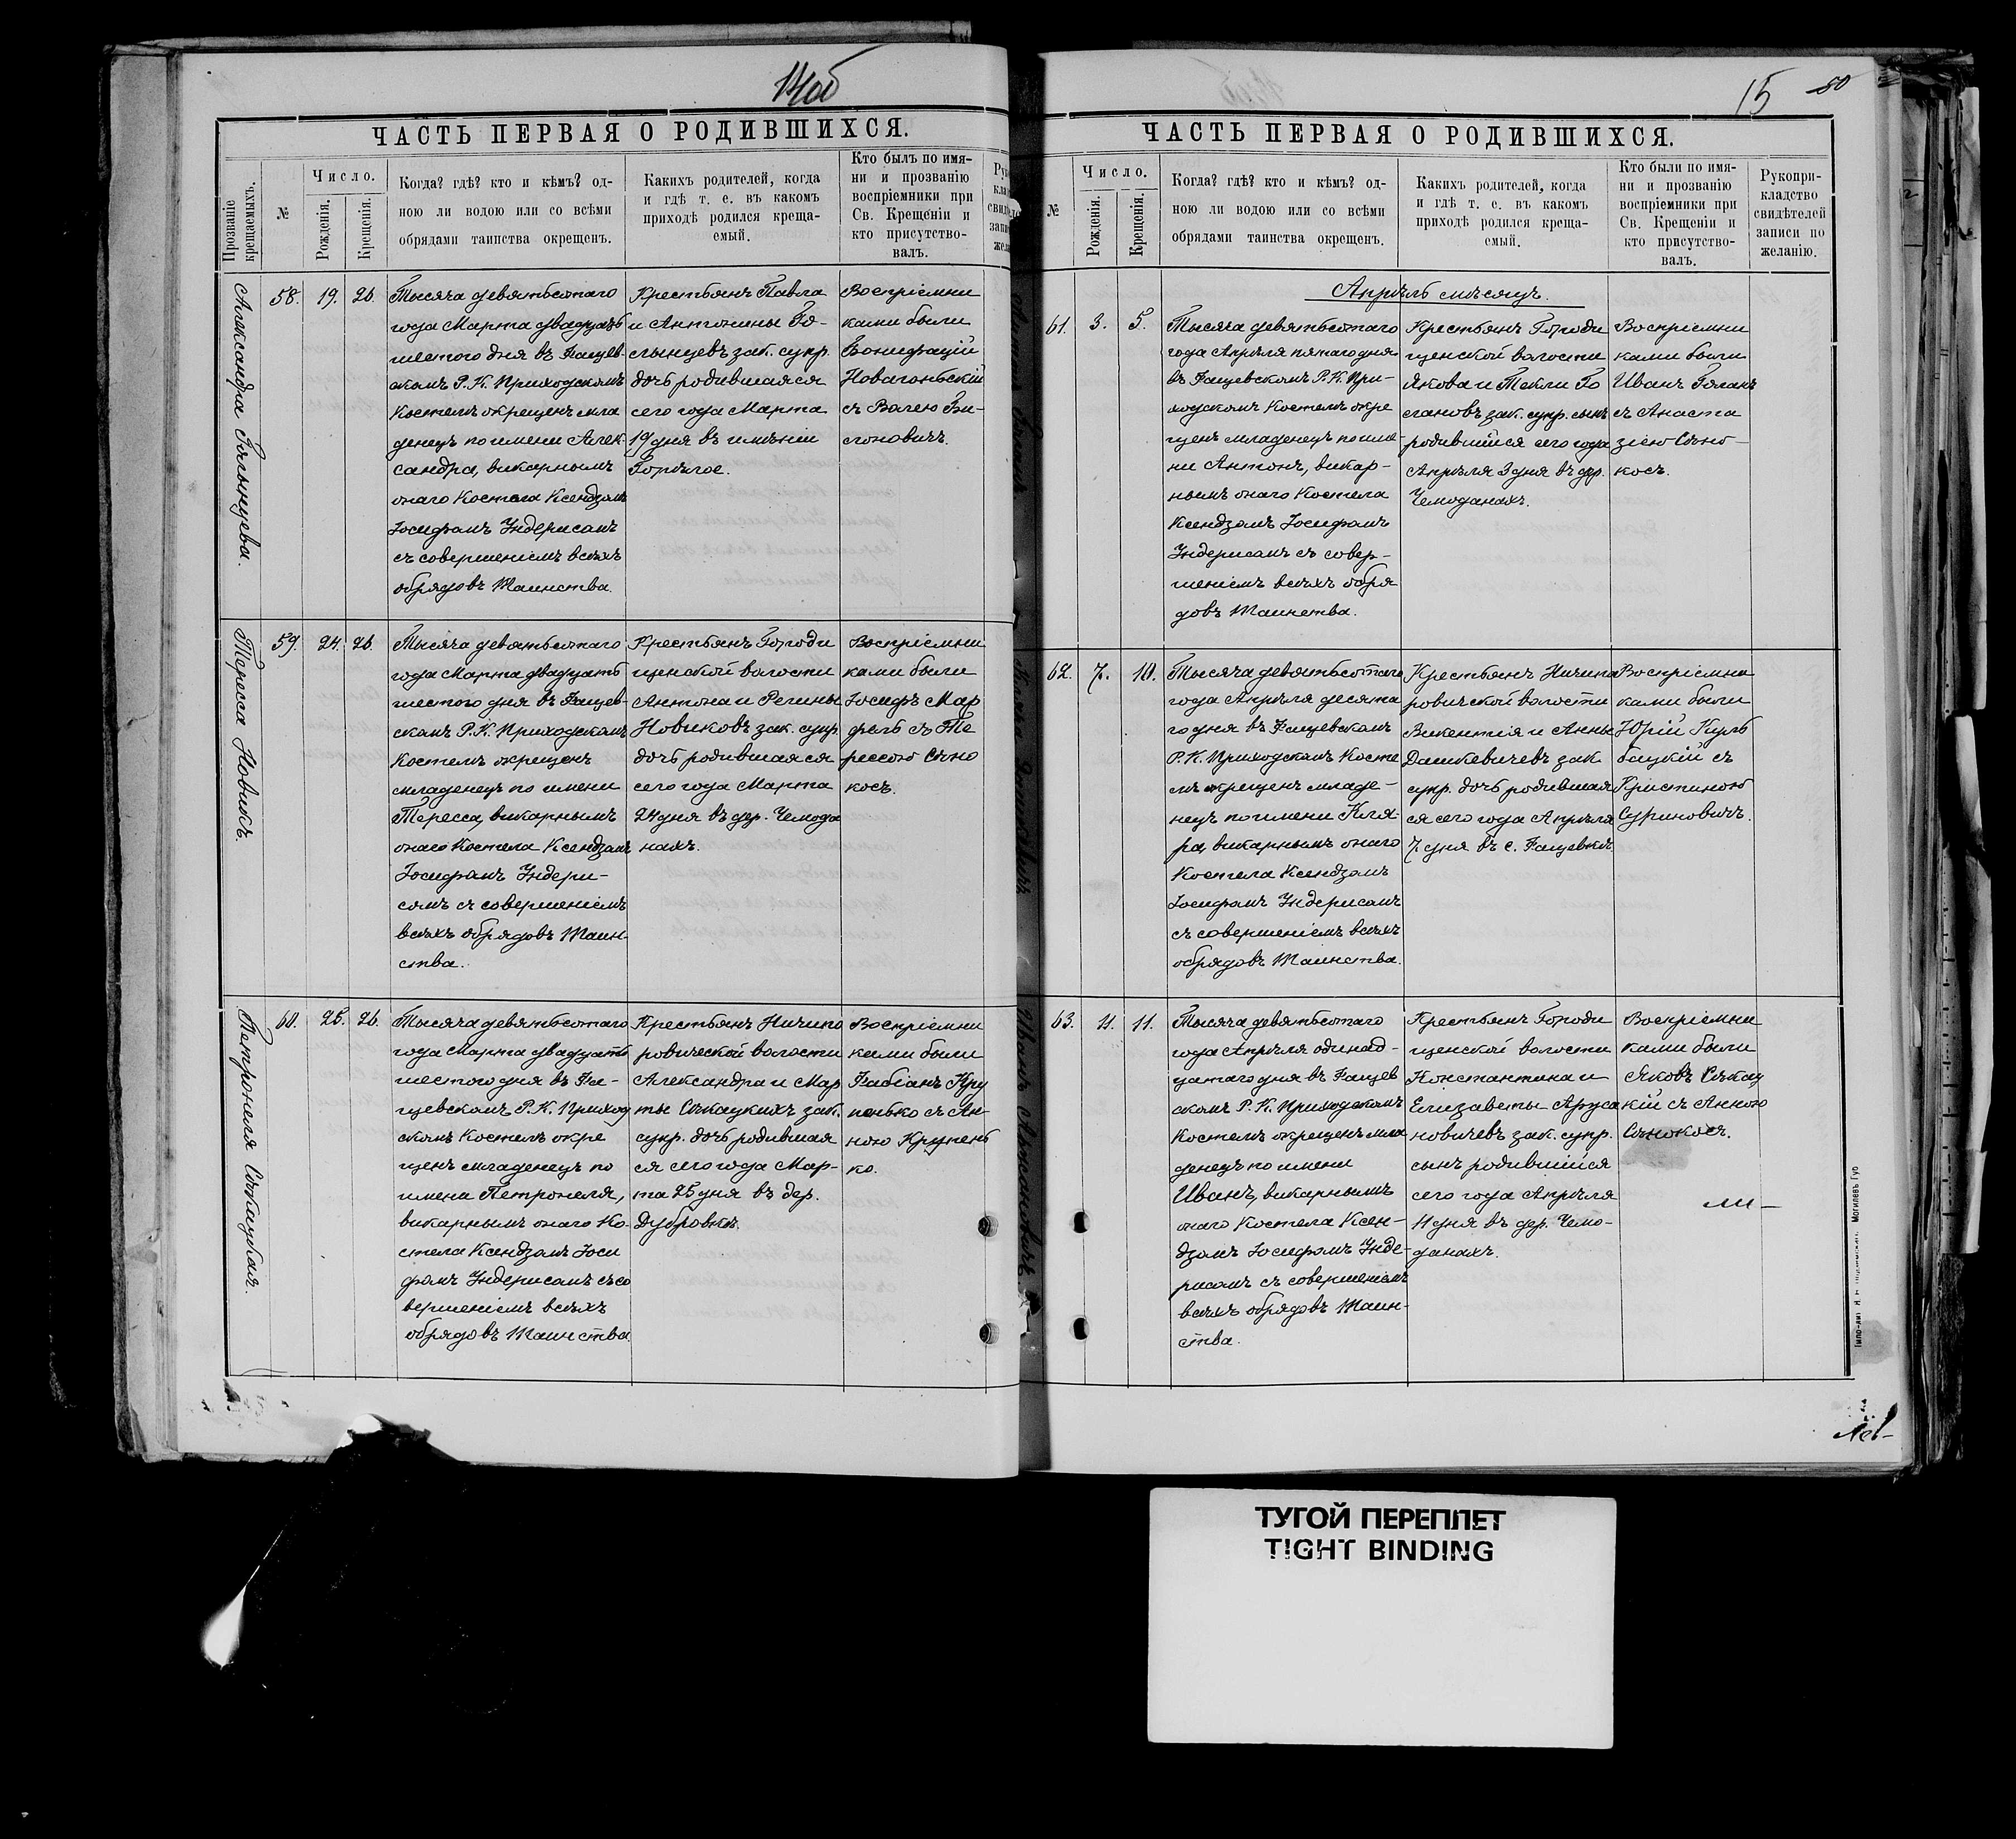 14об
ЧАСТЬ ПЕРВАЯ О РОДИВШИХСЯ.
Прозваніе крещаемыхъ.
№
Число.
Рожденія.
Крещенія.
Когда? гдѣ? кто и кѣмъ? од-
ною ли водою или со всѣми
обрядами таинства окрещенъ.
Какихъ родителей, когда
и гдѣ т. е. въ какомъ
приходѣ родился креща-
емый.
Кто былъ по имя-
ни и прозванію
воспріемники при
Св. Крещеніи и
кто присутство-
валъ.
Александра Голынцева.
58. 19. 26.
Тысяча девятьсотаго
года Марта двадцать
шестого дня въ Фащев-
скомъ Р. К. Приходскомъ
Костелѣ окрещенъ мла
денецъ по имени Алек-
сандра, викарнымъ
онаго Костела Ксендзомъ
Іосифомъ Ундерисомъ
съ совершеніемъ всѣхъ
обрядовъ Таинства.
Крестьянъ Павла
и Антонины Го-
лынцевъ зак. супр.
дочь родившаяся
сего года Марта
19 дня въ имѣніи
Горѣлое.
Воспріемни
ками были
Бонифацій
съ
Тереса Новикъ.
59. 24. 26.
Тысяча девятьсотаго
года Марта двадцать
шестого дня въ Фащев-
скомъ Р. К. Приходскомъ
Костелѣ окрещенъ
младенецъ по имени
Тересса, викарнымъ
онаго Костела Ксендзомъ
Іосифомъ Ундери-
сомъ съ совершеніемъ
всѣхъ обрядовъ Таин-
ства.
Крестьянъ Городи
щенской волости
Антона и Регины
Новиковъ зак. супр.
дочь родившаяся
сего года Марта
24 дня въ дер. Чемода
нахъ.
Воспріемни
ками были
Іосифъ Мар
фель съ Те
рессою Сѣно
косъ.
Петронеля Сѣкацкая.
60. 25. 26.
Тысяча девятьсотаго
года Марта двадцать
шестого дня въ Фа-
щевскомъ Р. К. Приход
скомъ Костелѣ окре
щенъ младенецъ по
имени Петронеля,
викарнымъ онаго Ко-
стела Ксендзомъ Іоси
фомъ Ундерисомъ съ со
вершеніемъ всѣхъ
обрядовъ Таинства
Крестьянъ Ничипо
ровической волости
Александра и Мар
ты Сѣкацкихъ зак.
супр. дочь родившая
ся сего года Мар-
та 25 дня въ дер.
Дубровкѣ.
Воспріемни
ками были
Фабіанъ Кру
пенько съ Ан-
ною Крупень
ко.
15 50
ЧАСТЬ ПЕРВАЯ О РОДИВШИХСЯ.
№
Число.
Рожденія.
Крещенія.
Когда? гдѣ? кто и кѣмъ? од-
ною ли водою или со всѣми
обрядами таинства окрещенъ.
Какихъ родителей, когда
и гдѣ т. е. въ какомъ
приходѣ родился креща-
емый.
Кто были по имя-
ни и прозванію
воспріемники при
Св. Крещеніи и
кто присутство-
валъ.
Рукопри-
кладство
свидѣтелей
записи по
желанію.
Апрѣль мѣсяцъ.
61. 3. 5.
Тысяча девятьсотаго
года Апрѣля пятаго дня
въ Фащевскомъ Р. К. При-
ходскомъ Костелѣ окре
щенъ младенецъ по име-
ни Антонъ, викар-
нымъ онаго Костела
Ксендзомъ Іосифомъ
Ундерисомъ съ совер-
шеніемъ всѣхъ обря
довъ Таинства.
Крестьянъ Городи
щенской волости
Якова и Текли Го
лановъ зак. супр. сынъ
родившійся сего года
Апрѣля 3 дня въ дер.
Чемоданахъ.
Воспріемни
ками были
Иванъ Голанъ
съ Анаста
зіею Сѣно-
косъ.
62. 7. 10.
Тысяча девятьсотаго
года Апрѣля десята
го дня въ Фащевскомъ
Р. К. Приходскомъ Косте
лѣ окрещенъ младе-
нецъ по имени Кля-
ра, викарнымъ онаго
Костела Ксендзомъ
Іосифомъ Ундерисомъ
съ совершеніемъ всѣхъ
обрядовъ Таинства.
Крестьянъ Ничипо
ровичской волости
Викентія и Анны
Дашкевичевъ зак.
супр. дочь родившая
ся сего года Апрѣля
7 дня въ с. Фащевкѣ.
Воспріемни
ками были
Юрій Куль
бацкій съ
Кристиною
Суриновичъ.
63. 11. 11.
Тысяча девятьсотаго
года Апрѣля одинад-
цатаго дня въ Фащев
скомъ Р. К. Приходскомъ
Костелѣ окрещенъ мла
денецъ по имени
Иванъ, викарнымъ
онаго Костела Ксен-
дзомъ Іосифомъ Унде-
рисомъ съ совершеніемъ
всѣхъ обрядовъ Таин-
ства.
Крестьянъ Городи
щенской волости
Константина и
Елизаветы Аруса
новичевъ зак. супр.
сынъ родившійся
сего года Апрѣля
11 дня въ дер. Чемо-
данахъ.
Воспріемни
ками были
Яковъ Сѣкац
кій съ Анною
Сѣнокосъ.
Могилевъ Губ
ТУГОЙ ПЕРЕПЛЕТ
TIGHT BINDING